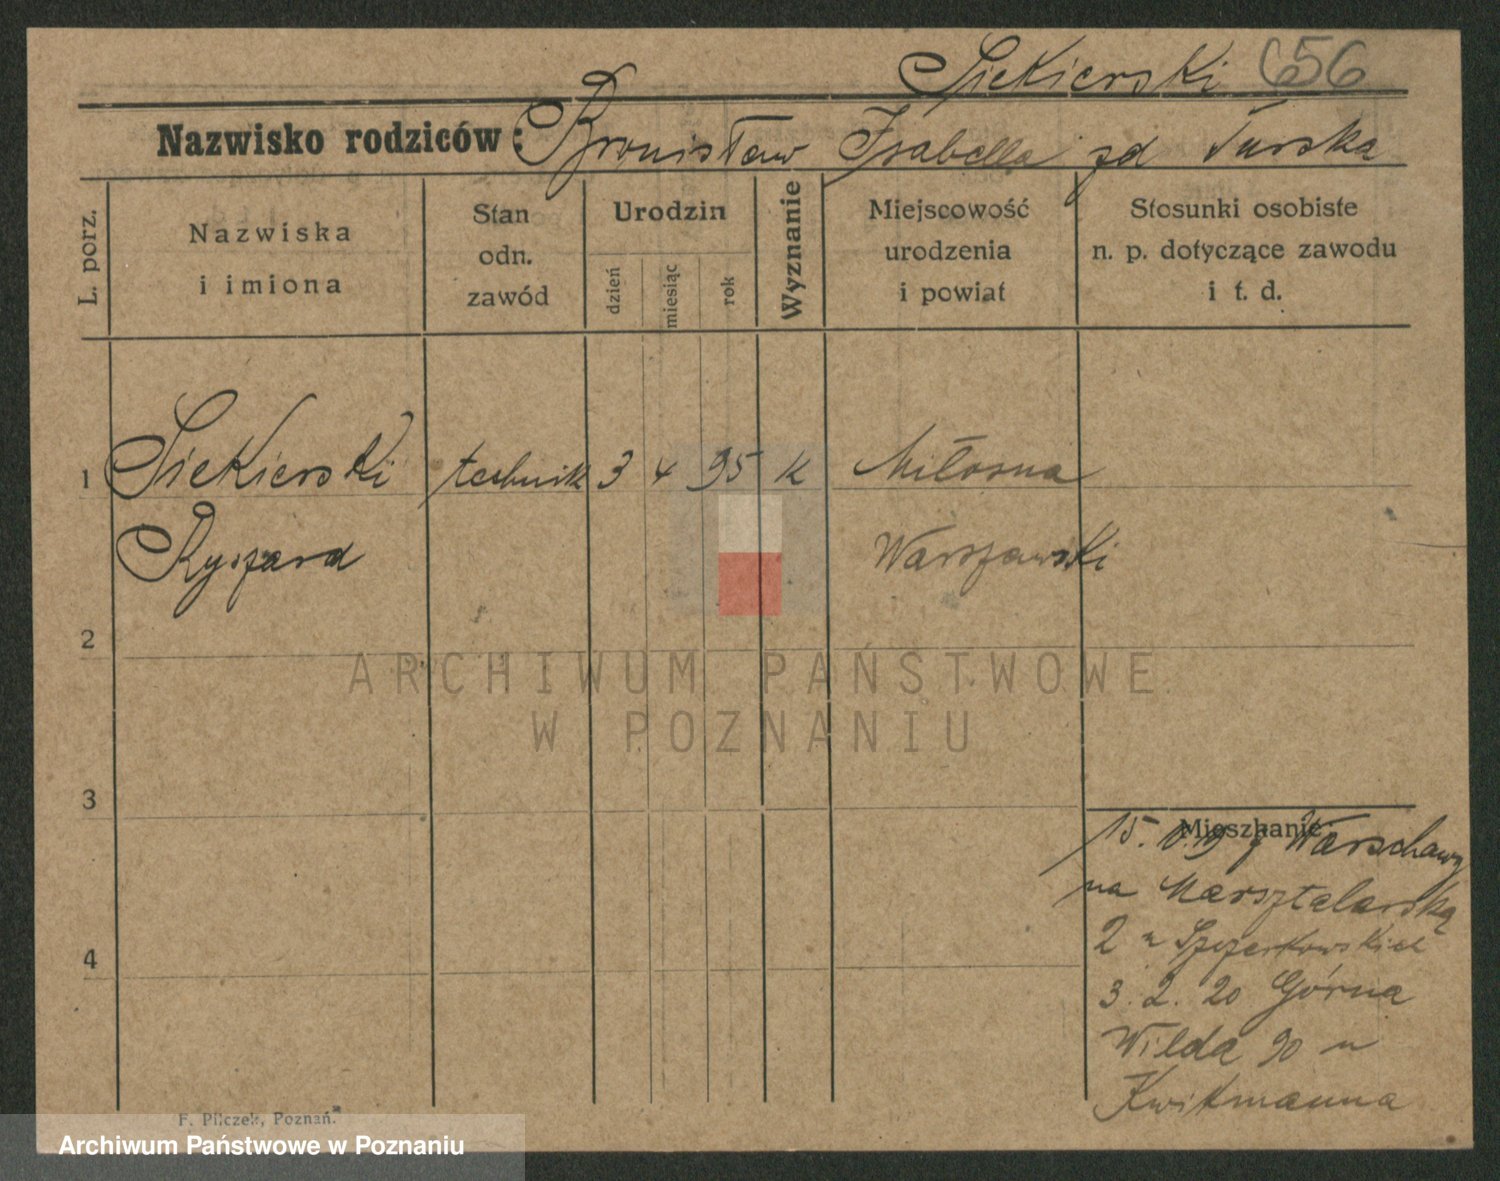 Siekierski 656
Nazwisko rodziców: Bronisław Isabella zd Turska
L. porz.
Nazwiska
i imiona
Stan
odn.
zawód
Urodzin
dzień
miesiąc
rok
Wyznanie
Miejscowość
urodzenia
i powiat
Stosunki osobiste
n. p. dotyczące zawodu
i t. d.
1 Siekierski technik 3 4 95 k Miłosna
Ryszard Warszawski
2
ARCHIWUM PAŃSTWOWE
W POZNANIU
3
Mieszkanie:
15. 10. 19 z Warschawy
na Marsztalarską
4
2 u
3. 2. 20 Górna
Wilda 90 u
Kwikmanna
F. Pilczek, Poznań.
Archiwum Państwowe w Poznaniu